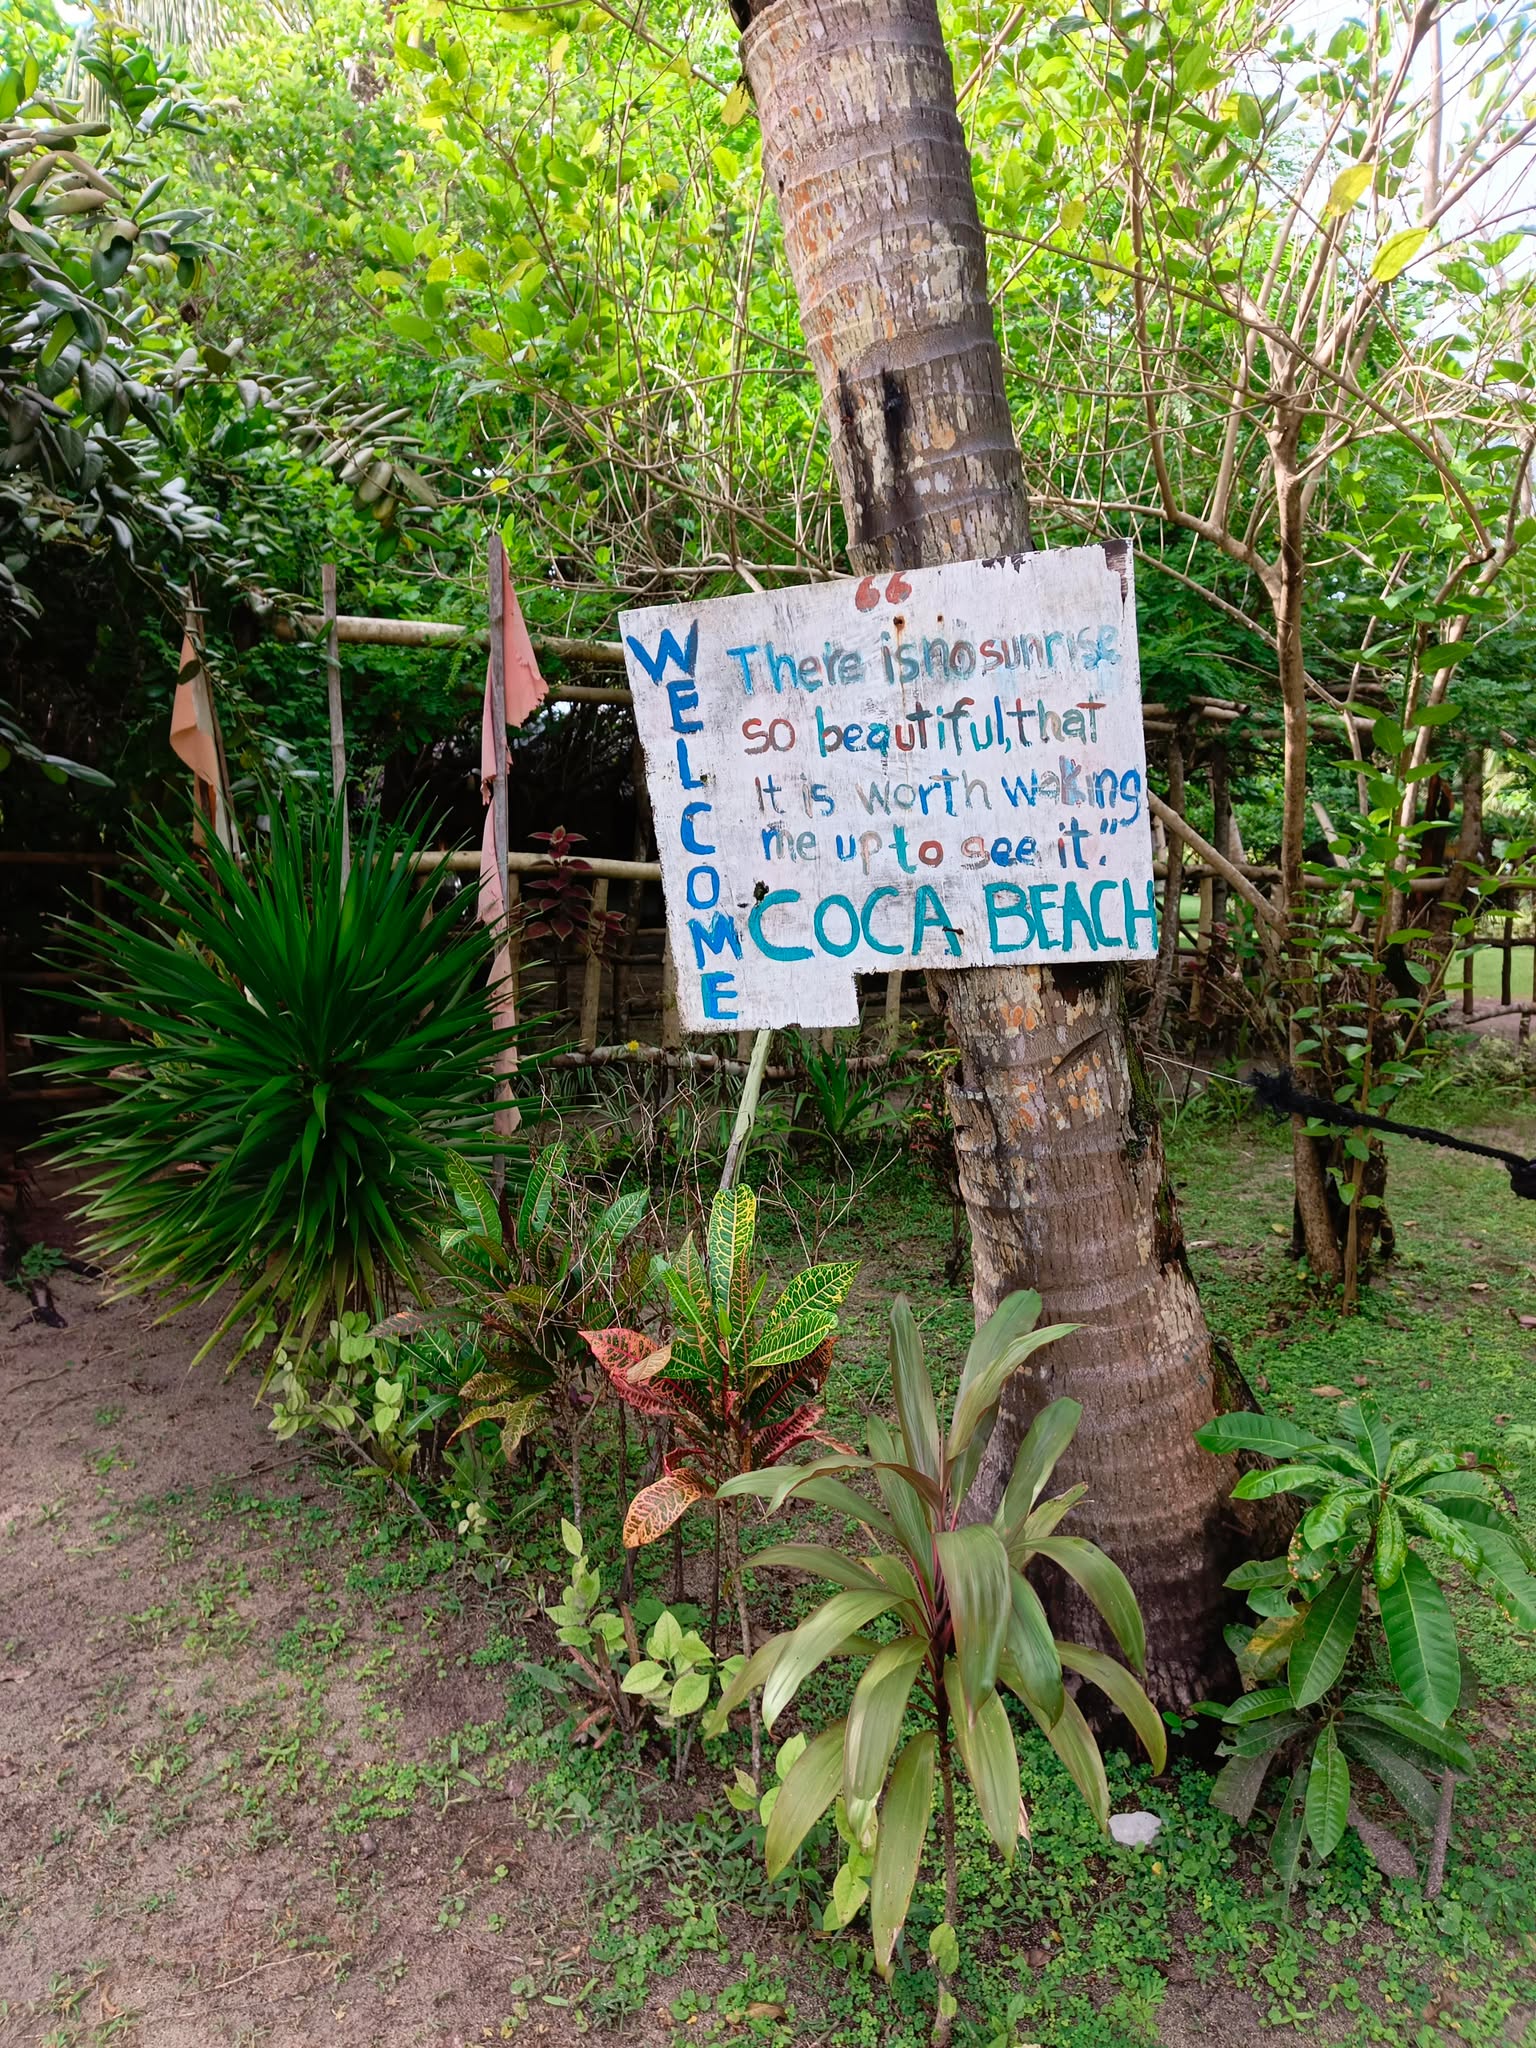 WELCOME
“
There is no sunrise
so beautiful, that
It is worth waking
me up to see it."
COCA BEACH